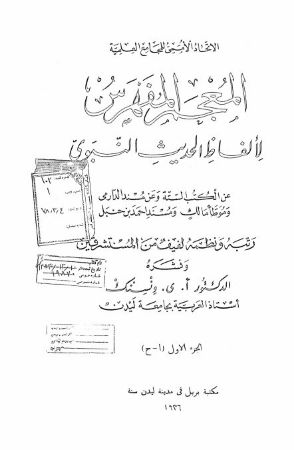 الاتحاد الأممى للمجامع العلمية
المعجم المفهرس
لألفاظ الحديث النبوى
عن الكتب الستة وعن مسند الدارمى
وموطأ مالك ومسند احمد بن حنبل
رتبه ونظمه لفيف من المستشرقين
ونشره
الدكتور أ. ى. ونسنك
أستاذ العربية بجامعة ليدن
الجزء الاول (ا–ح)
مكتبة بريل فى مدينة ليدن سنة
١٩٣٦